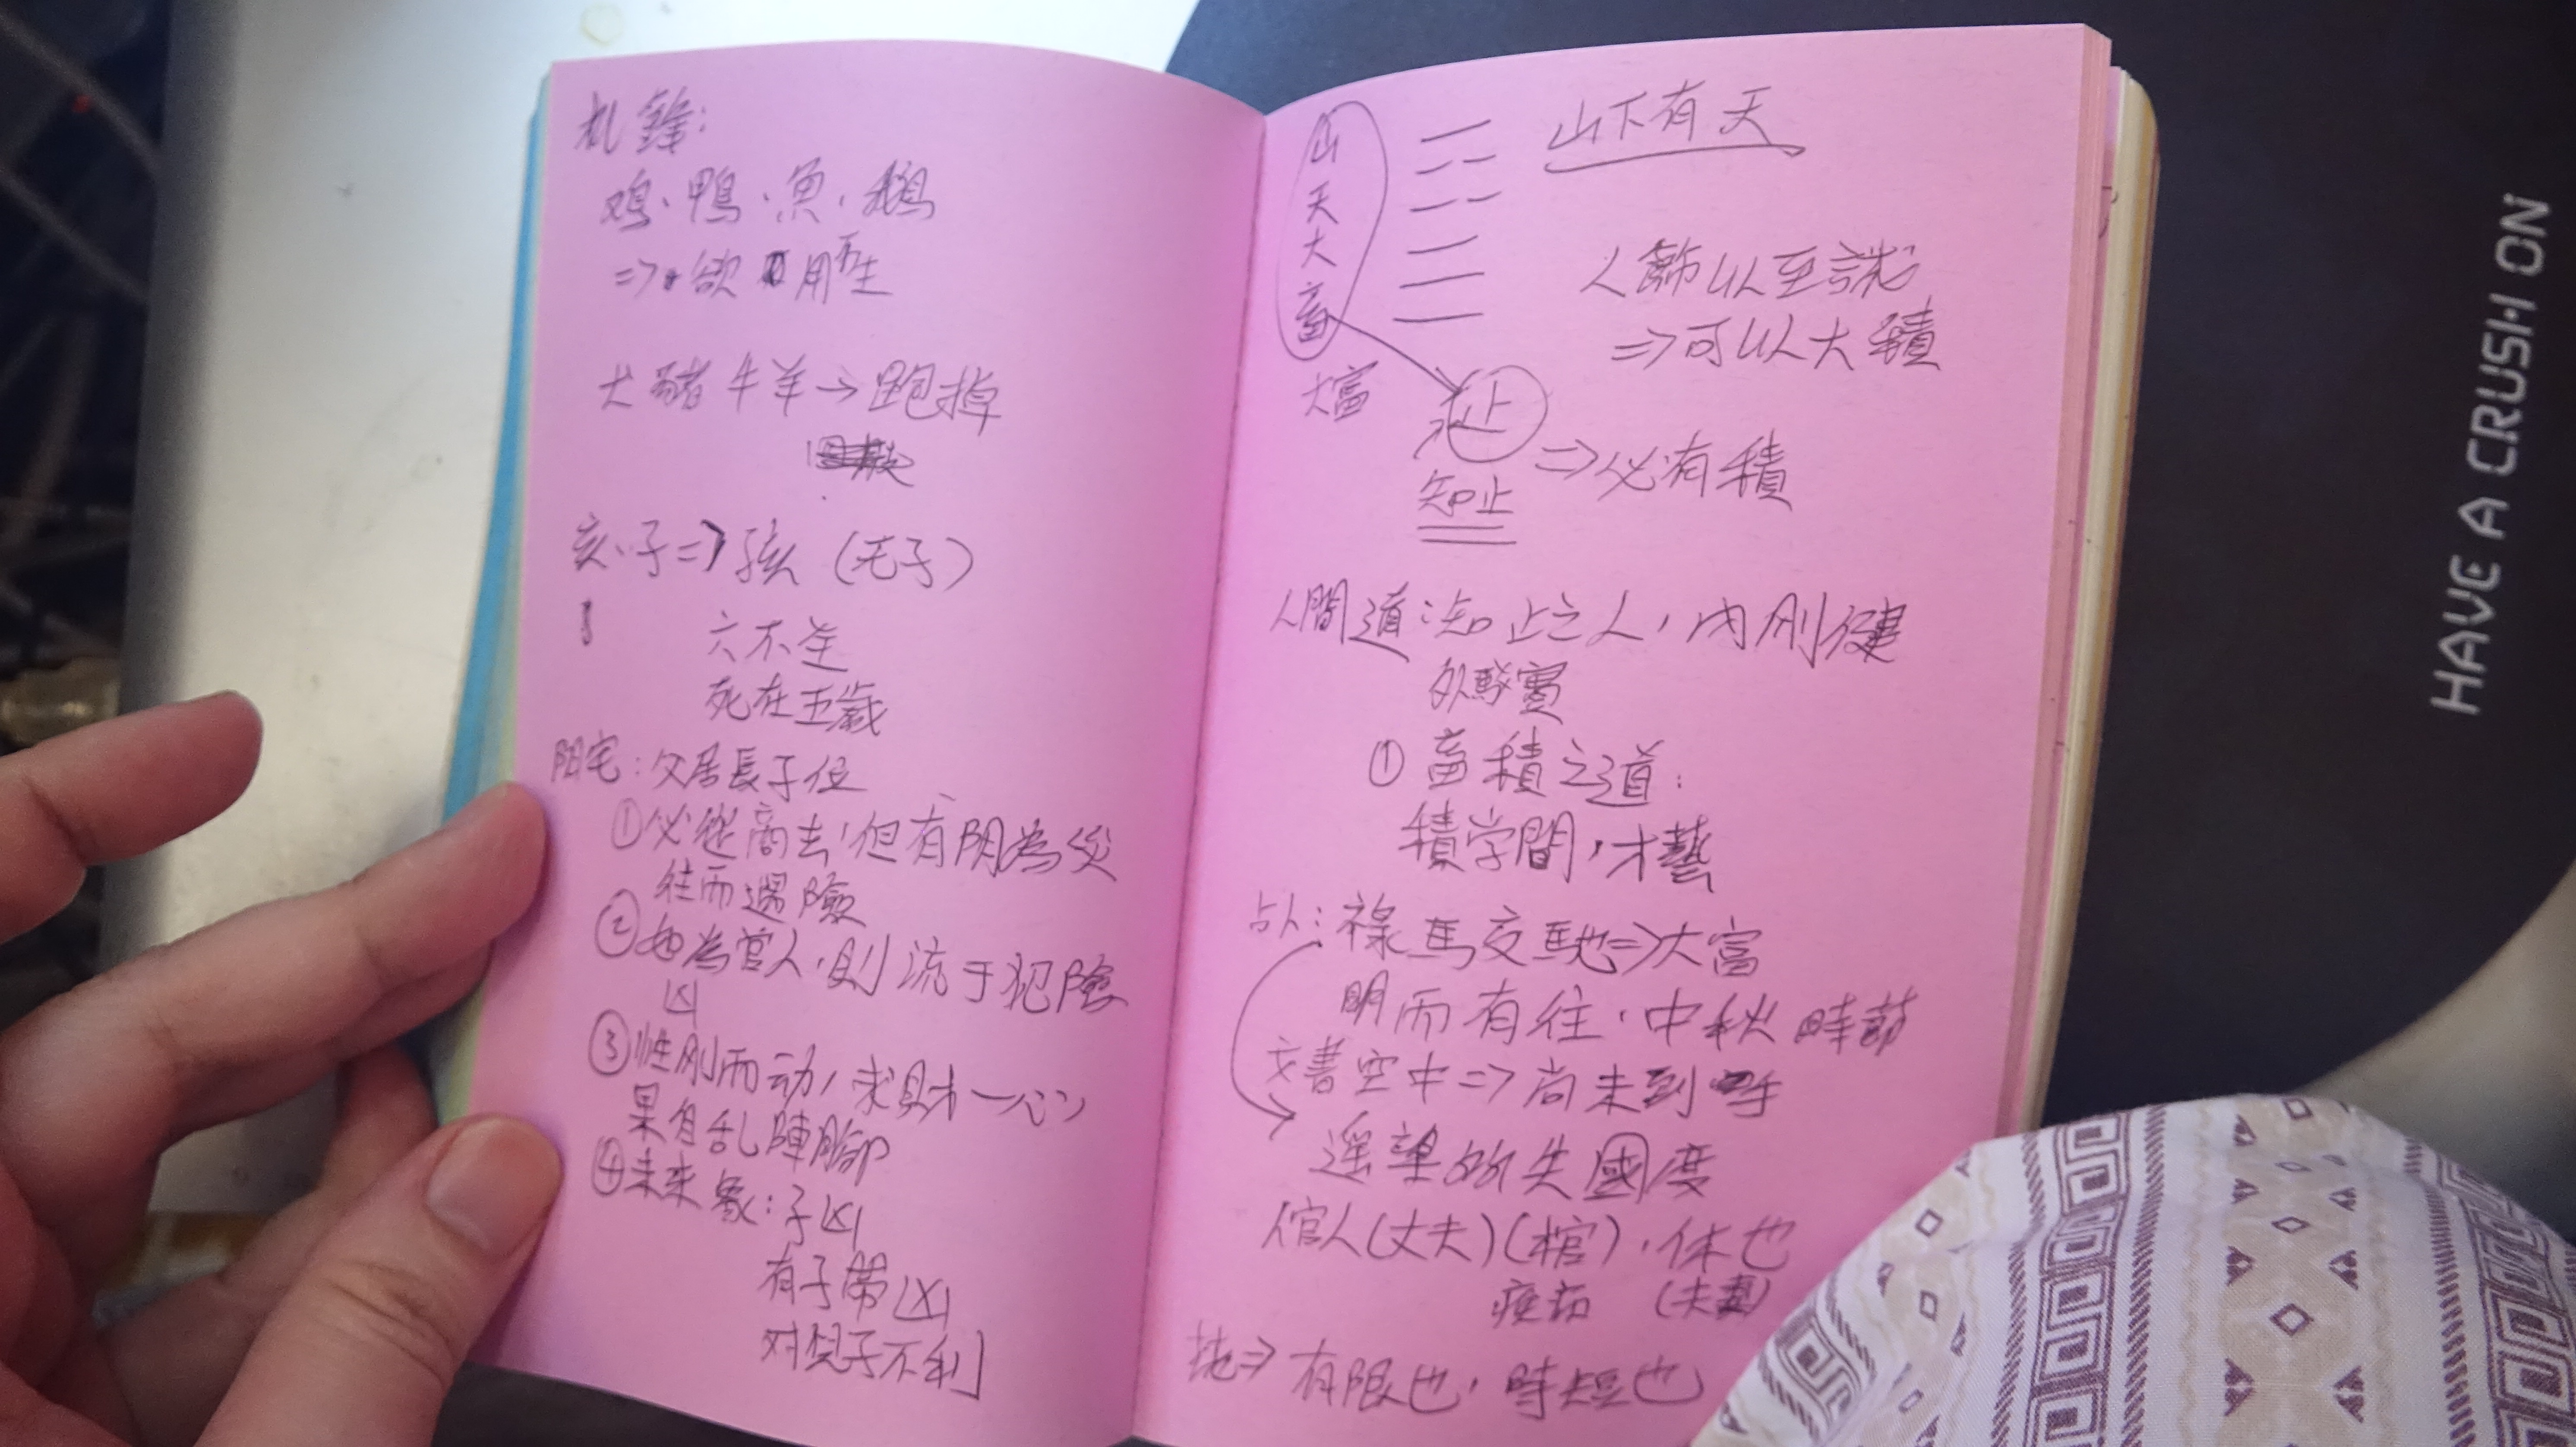 机鋒:
鸡、鴨、魚、鵝
=> 欲用不生
犬豬牛羊→跑掉
亥、子=>孩(毛子)
六不生
死在五歲
阳宅:父居長子位
①必從商去,但有阴為災
往而遇險
②如為官人,則流于犯險
凶
③性刚而动,求財一心
果自乱陣腳
④未来象:子凶
有子帶凶
对兒子不利
山天大畜
山下有天
人飾以至誠
=>可以大積
大富
止
知止
=>必有積
人間道:知止之人,内刚健
外騖實
①畜積之道:
積学問,才藝
占人:祿馬交馳=>大富
明而有往,中秋時節
文書空中=>尚未到手
遥望的失國度
倌人(丈夫)(棺),休也
(夫妻)
=>有限也,時短也
HAVE A CRUSH ON